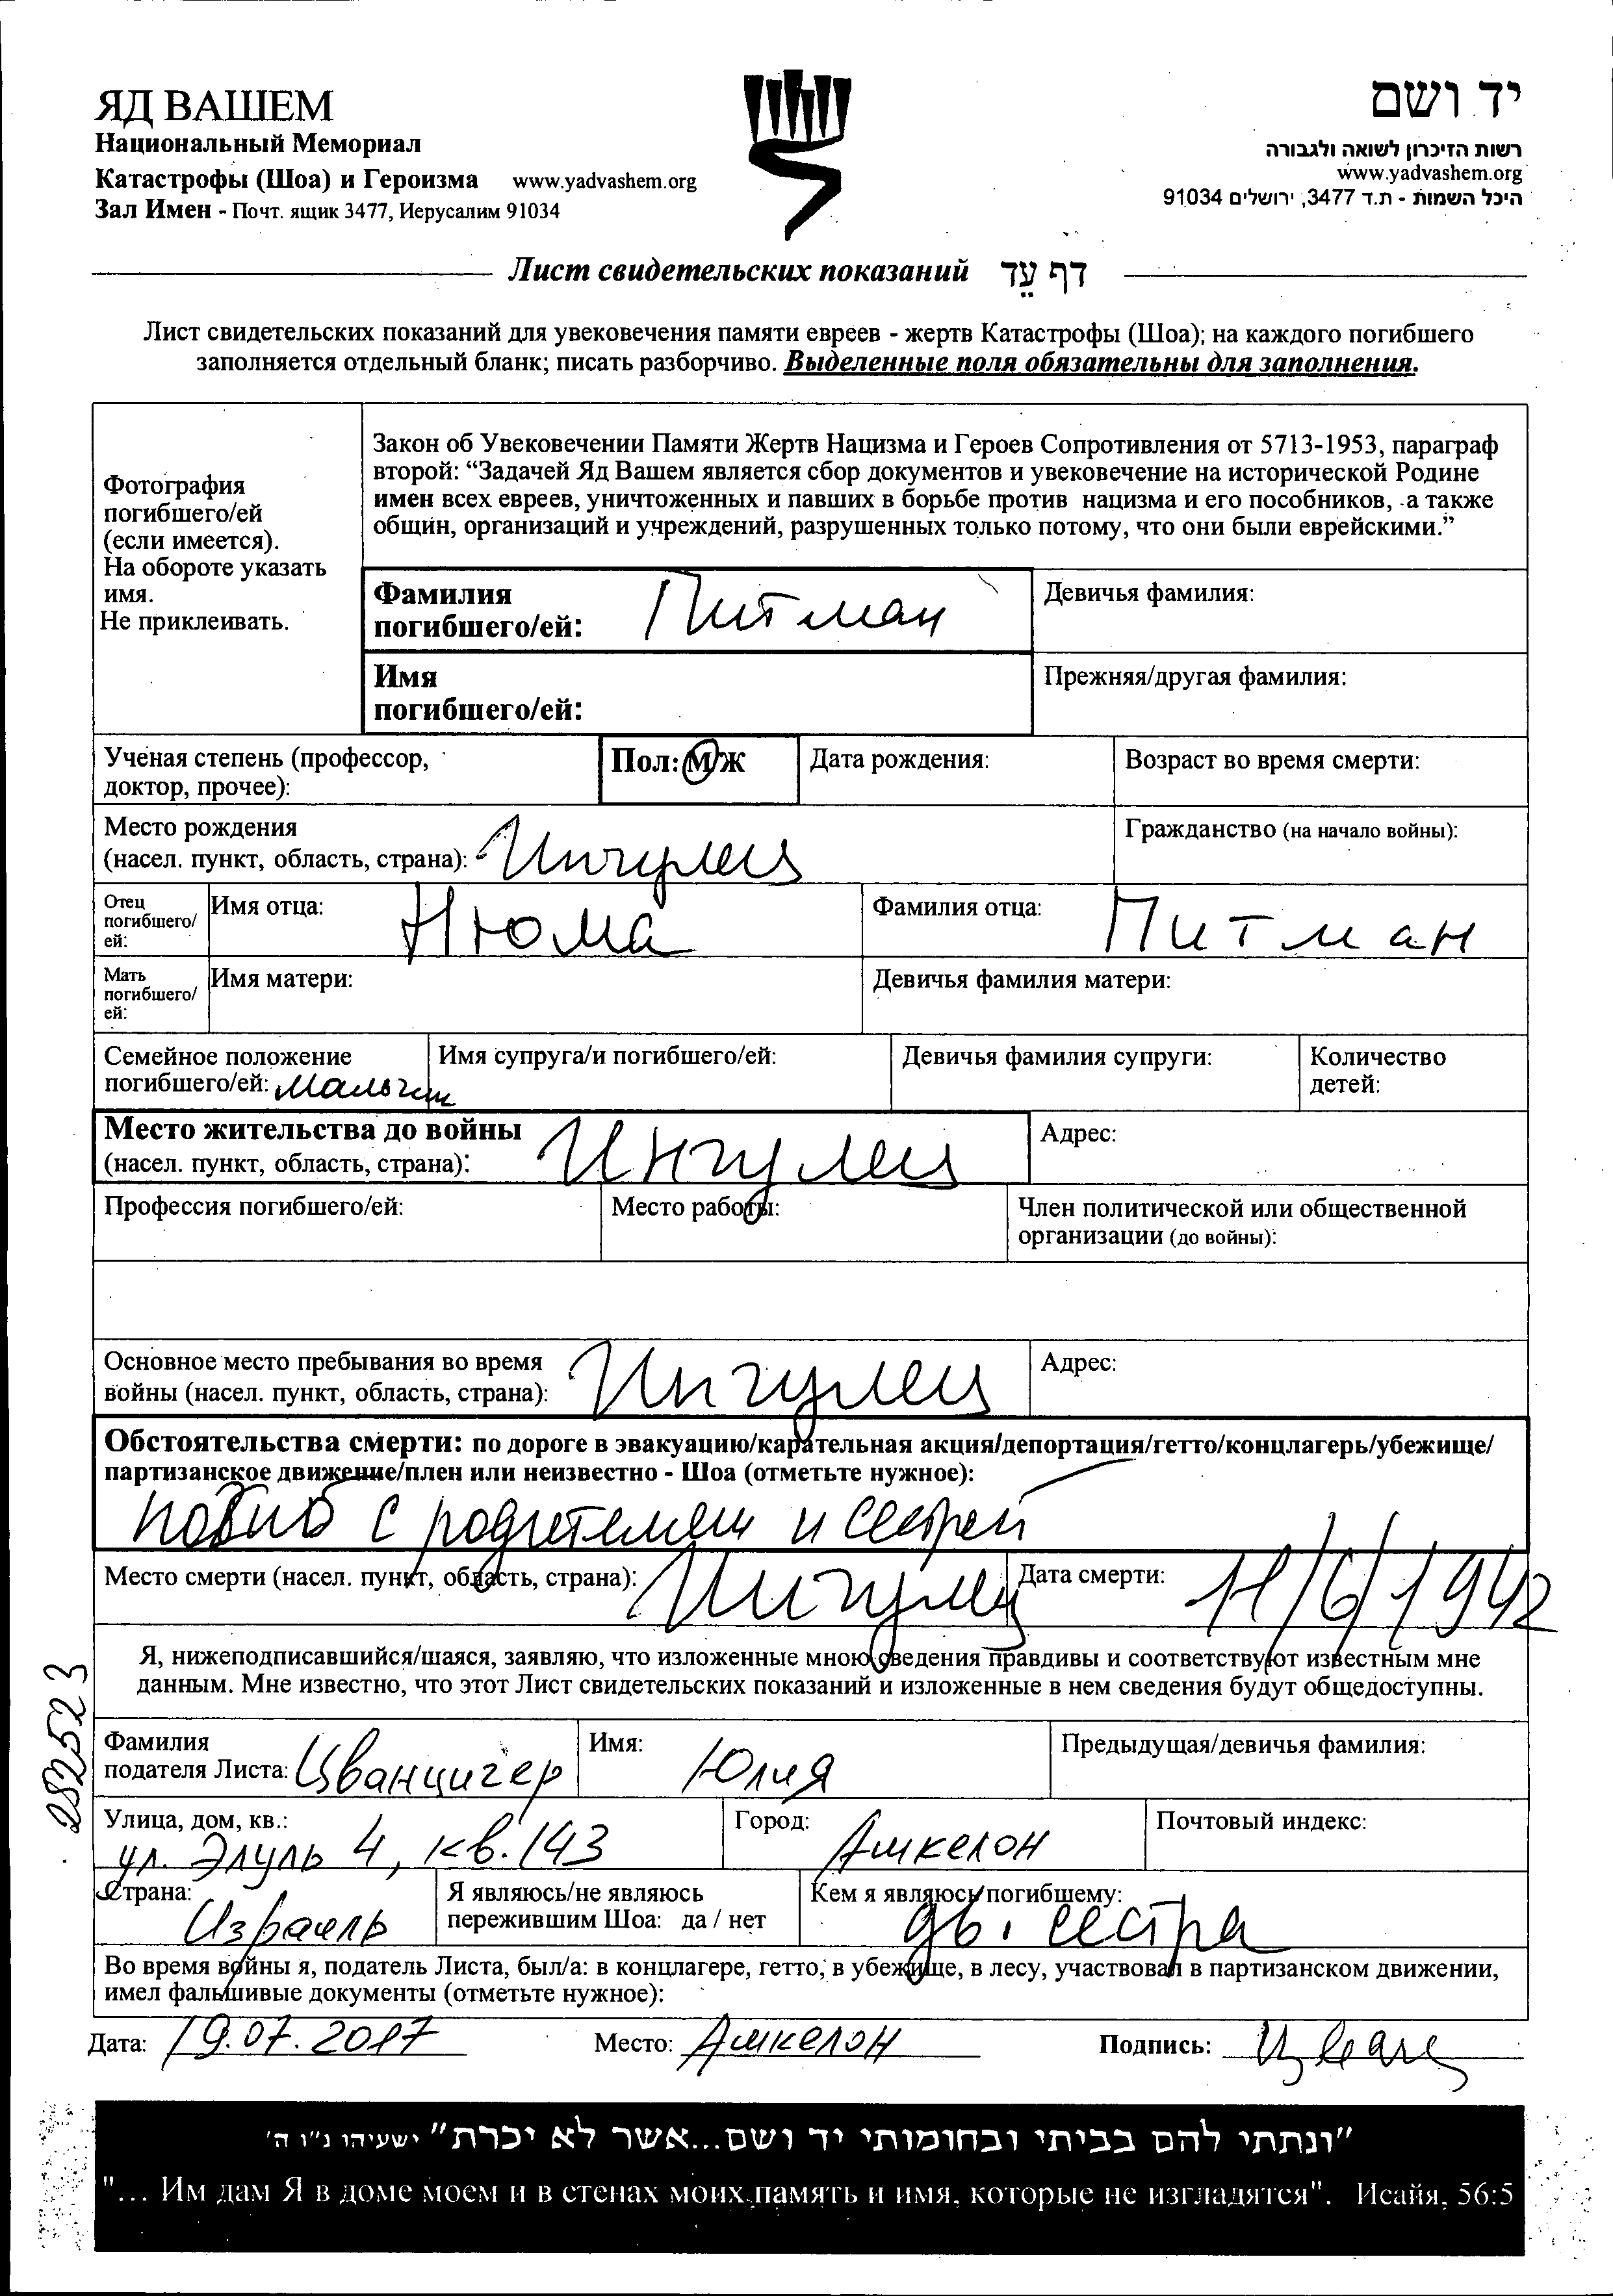 ЯД ВАШЕМ
Национальный Мемориал
Катастрофы (Шоа) и Героизма www.yadvashem.org
Зал Имен - Почт. ящик 3477, Иерусалим 91034
יד ושם
רשות הזיכרון לשואה ולגבורה
www.yadvashem.org
היכל השמות - ת.ד 3477, ירושלים 91034
Лист свидетельских показаний דף עֵד
Лист свидетельских показаний для увековечения памяти евреев - жертв Катастрофы (Шоа); на каждого погибшего
заполняется отдельный бланк; писать разборчиво. Выделенные поля обязательны для заполнения.
Фотография
погибшего/ей
(если имеется).
На обороте указать
имя.
Не приклеивать.
Закон об Увековечении Памяти Жертв Нацизма и Героев Сопротивления от 5713-1953, параграф
второй: “Задачей Яд Вашем является сбор документов и увековечение на исторической Родине
имен всех евреев, уничтоженных и павших в борьбе против нацизма и его пособников, а также
общин, организаций и учреждений, разрушенных только потому, что они были еврейскими.”
Фамилия
погибшего/ей: Питман
Девичья фамилия:
Имя
погибшего/ей:
Прежняя/другая фамилия:
Ученая степень (профессор,
доктор, прочее):
Пол: М/Ж
Дата рождения:
Возраст во время смерти:
Место рождения
(насел. пункт, область, страна): Ингулец
Гражданство (на начало войны):
Отец
погибшего/
ей:
Имя отца: Нюма
Фамилия отца: Питман
Мать
погибшего/
ей:
Имя матери:
Девичья фамилия матери:
Семейное положение
погибшего/ей: мальчик
Имя супруга/и погибшего/ей:
Девичья фамилия супруги:
Количество
детей:
Место жительства до войны
(насел. пункт, область, страна): Ингулец
Адрес:
Профессия погибшего/ей:
Место работы:
Член политической или общественной
организации (до войны):
Основное место пребывания во время
войны (насел. пункт, область, страна): Ингулец
Адрес:
Обстоятельства смерти: по дороге в эвакуацию/карательная акция/депортация/гетто/концлагерь/убежище/
партизанское движение/плен или неизвестно - Шоа (отметьте нужное):
погиб с родителями и сестрей
Место смерти (насел. пункт, область, страна): Ингулец
Дата смерти: 11/6/1942
Я, нижеподписавшийся/шаяся, заявляю, что изложенные мною сведения правдивы и соответствуют известным мне
данным. Мне известно, что этот Лист свидетельских показаний и изложенные в нем сведения будут общедоступны.
282523
Фамилия
подателя Листа: Цванцигер
Имя: Юлия
Предыдущая/девичья фамилия:
Улица, дом, кв.:
ул. Элуль 4, кв. 143
Город: Ашкелон
Почтовый индекс:
Страна: Израиль
Я являюсь/не являюсь
пережившим Шоа: да / нет
Кем я являюсь погибшему:
дв. сестра
Во время войны я, податель Листа, был/а: в концлагере, гетто, в убежище, в лесу, участвовал в партизанском движении,
имел фальшивые документы (отметьте нужное):
Дата: 19.07.2017 Место: Ашкелон Подпись: Цванц
"ונתתי להם בביתי ובחומותי יד ושם...אשר לא יכרת" ישעיהו נ"ו ה'
"... Им дам Я в доме моем и в стенах моих память и имя, которые не изгладятся". Исайя, 56:5